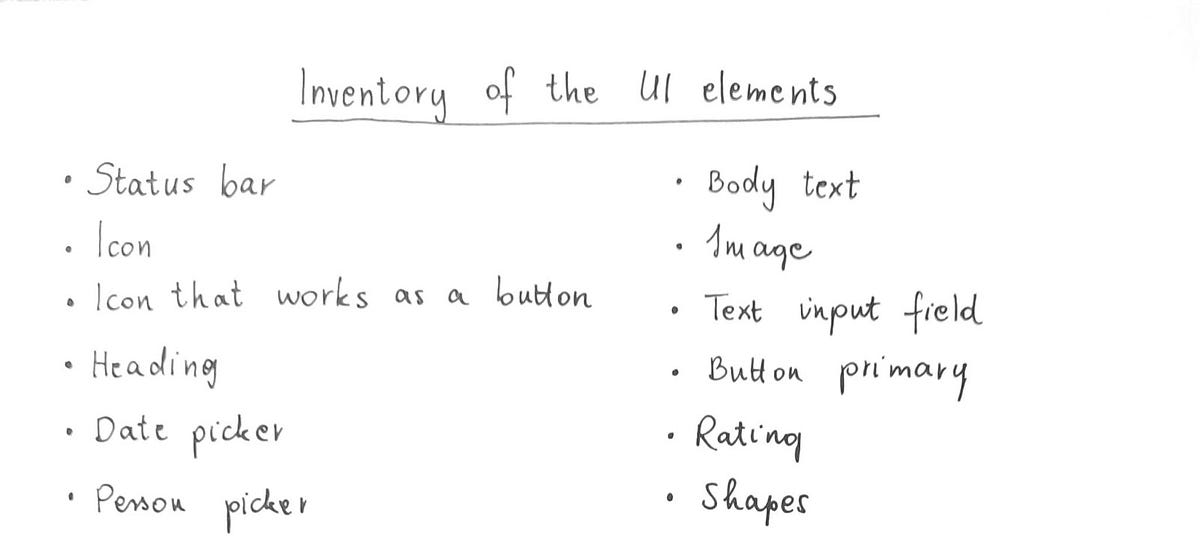 Inventory of the UI elements
• Status bar
• Icon
• Icon that works as a button
• Heading
• Date picker
• Person picker
• Body text
• Image
• Text input field
• Button primary
• Rating
• Shapes